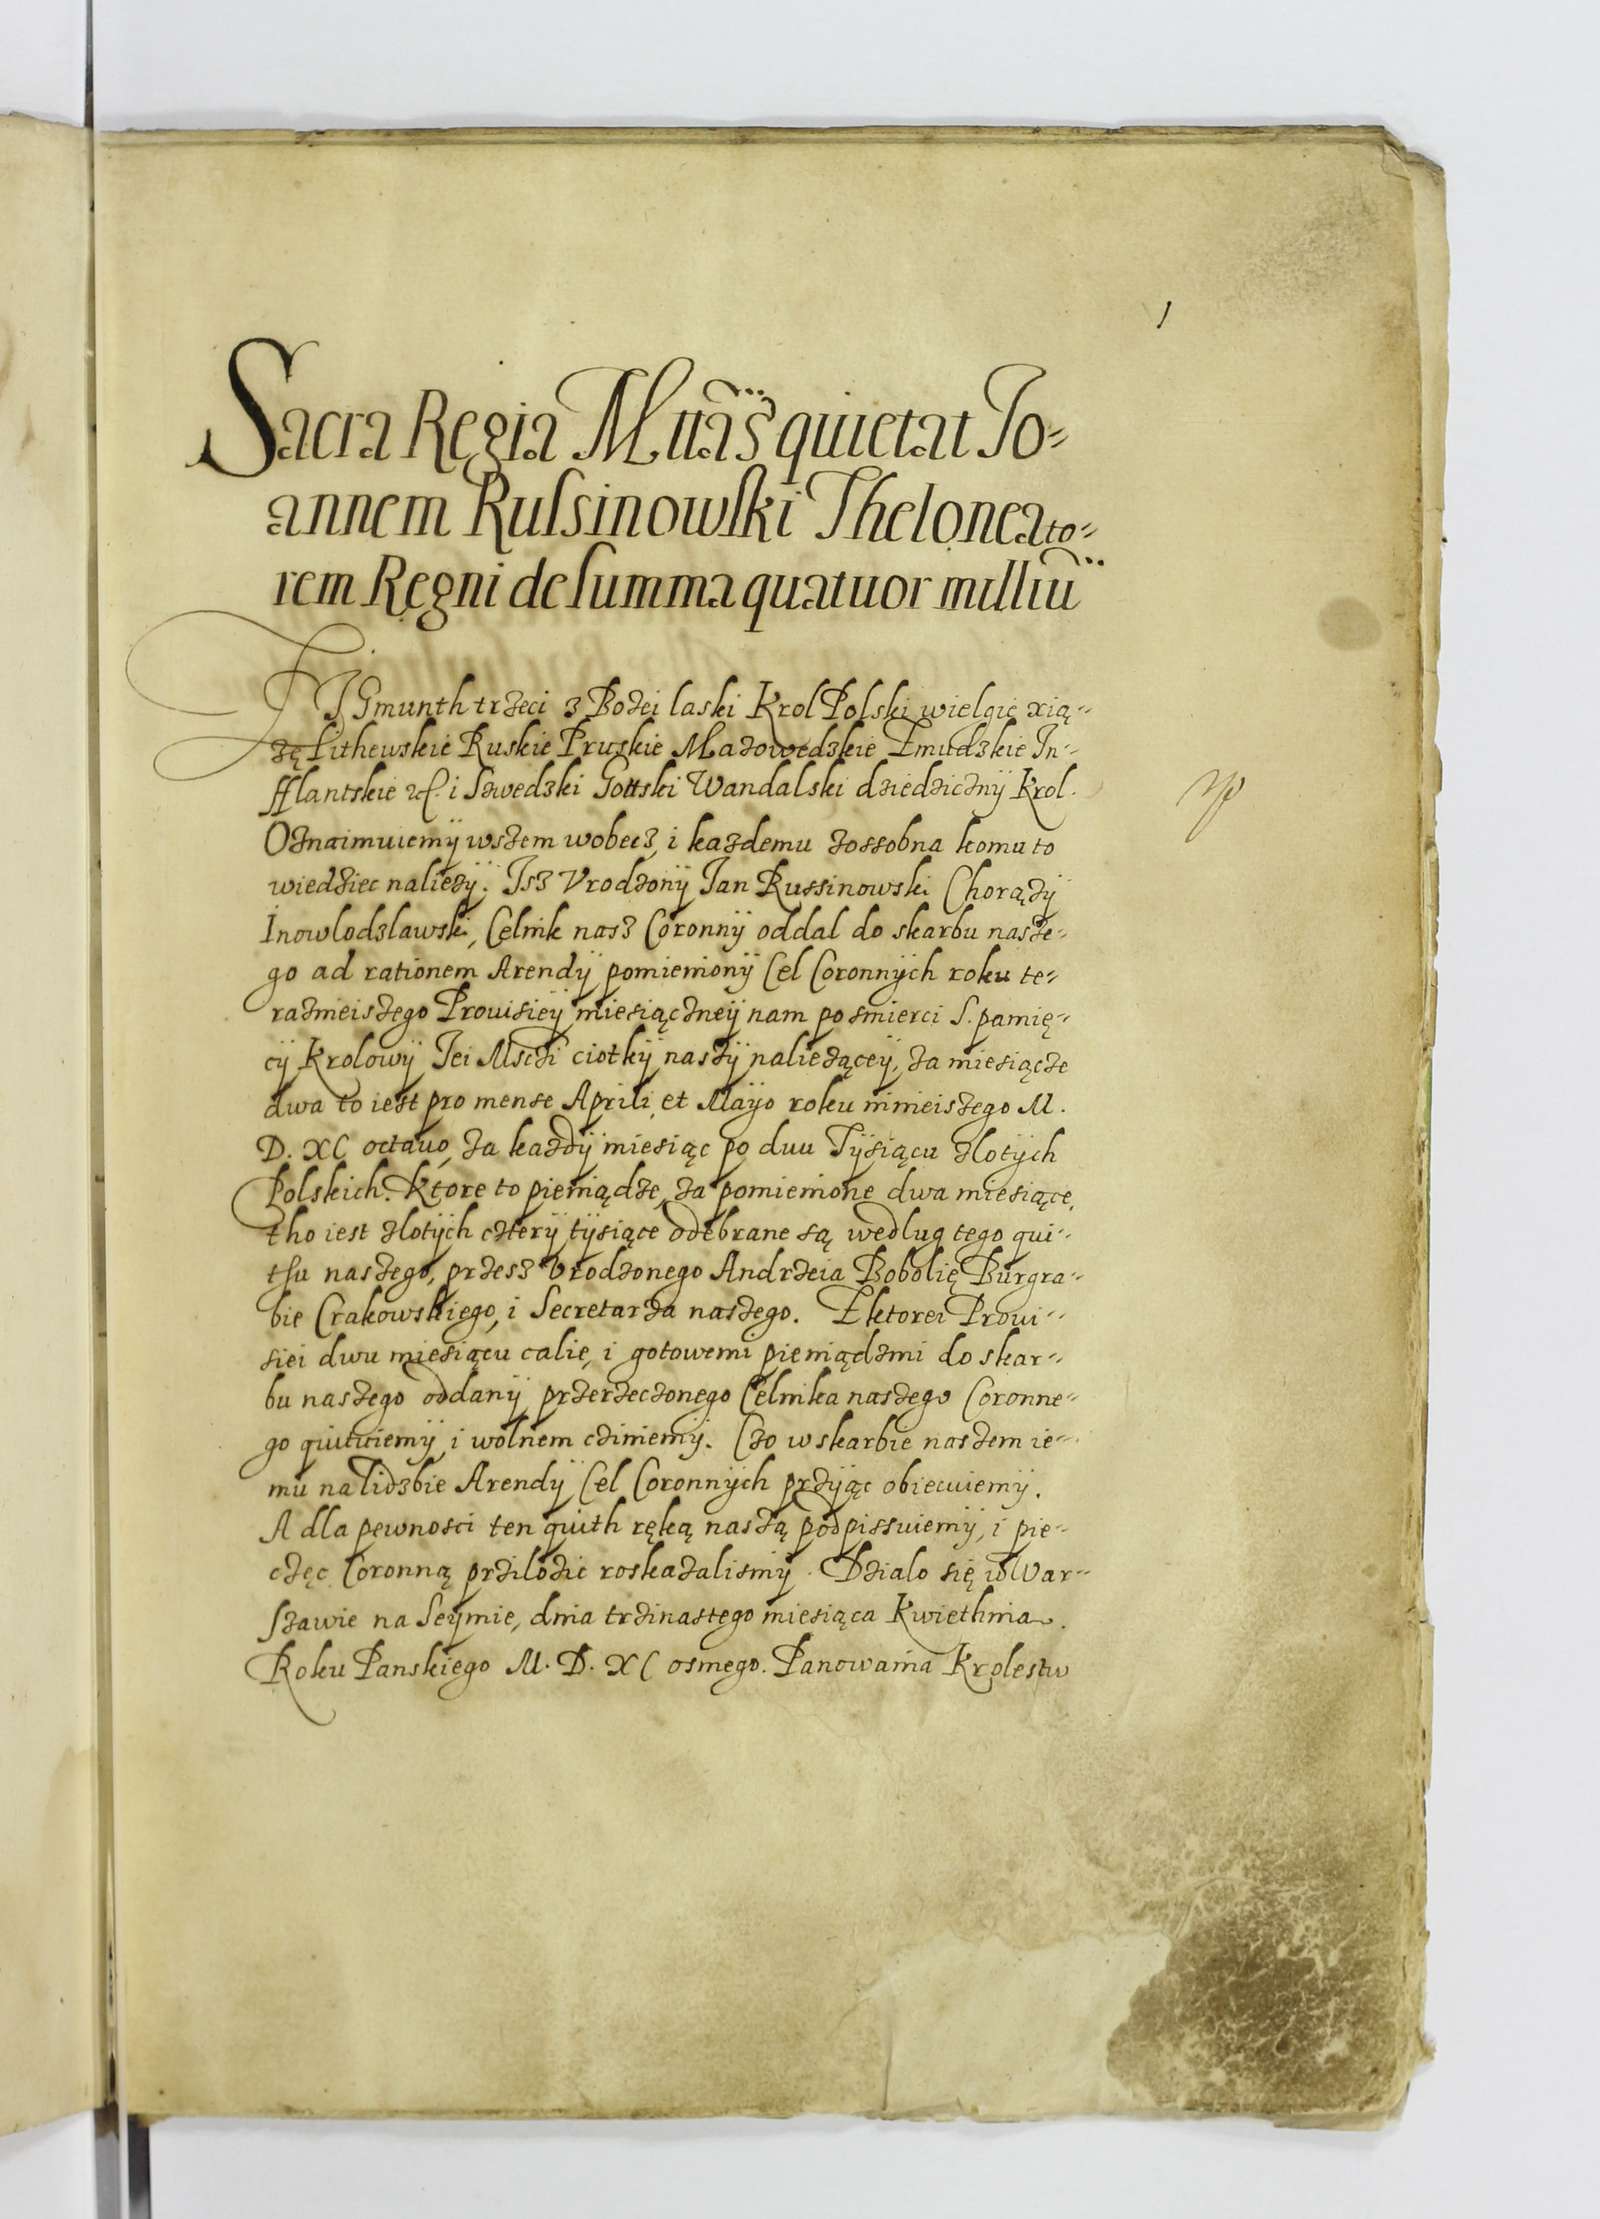 1
Sacra Regia Mttas quietat Jo-
annem Russinowski Theloneato-
rem Regni de summa quatuor milliu
ZJGmunth trzeci z Bozei laski Krol Polski wielgie xią-
zę Lithewskie Ruskie Pruskie Mazowedzskie Zmudzskie In-
fflantskie etc. i Szwedzski Gottski Wandalski dziedzicznÿ Krol.
Oznaimuiemÿ wszem wobecz, i kazdemu zossobna komu to
wiedziec naliezÿ. Isz Vrodzonÿ Jan Russinowski Chorązÿ
Inowlodzslawski, Celnik nasz Coronnÿ oddal do skarbu nasze-
go ad rationem Arendÿ pomienionÿ Cel Coronnÿch roku te-
razmeiszego Prouisieÿ miesięczneÿ nam po smierci S. pamię-
cÿ Krolowÿ Jei Mszti ciotkÿ naszÿ nalieząceÿ, za miesiącze
dwa to iest pro mense Aprili et Mayo roku ninieiszego M.
D. XC octauo, za kazdÿ miesiąc po dwu Tÿsiącu zlotÿch
Polskich. Ktore to pieniądze, za pomienione dwa miesiące,
tho iest zlotÿch czterÿ tÿsiące odebrane są wedlug tego qui-
thu naszego, przesz Vrodzonego Andrzeia Bobolię Burgra-
bie Crakowskiego, i Secretarza naszego. Z ktorei Proui-
siei dwu miesiącu calie, i gotowemi pieniądzmi do skar-
bu naszego oddanÿ przerzeczonego Celnika naszego Coronne-
go quituiemÿ i wolnem cziniemÿ. Czo w skarbie naszem ie-
mu na lidzbie Arendÿ Cel Coronnÿch przÿiąc obiecuiemÿ.
A dla pewnosci ten quith ręką naszą podpissuiemÿ, i pie-
częc Coronną prziloziс roskazalismÿ. Dzialo się w War-
szawie na Seÿmie, dnia trzinastego miesiąca Kwiethnia.
Roku Panskiego M. D. XC osmego. Panowania Krolestw